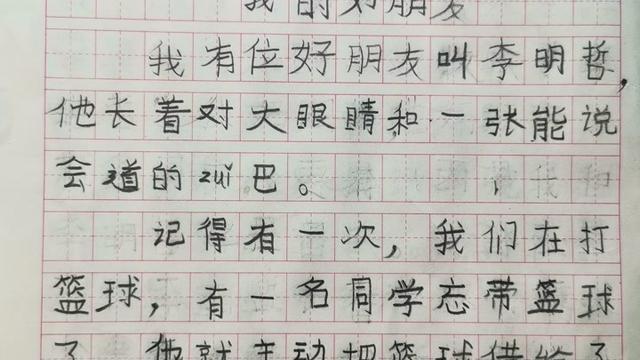 我的好朋友
我有位好朋友叫李明哲,
他长着对大眼睛和一张能说
会道的zuǐ巴。
记得有一次,我们在打
篮球,有一名同学忘带篮球
了 他就主动把篮球借给了